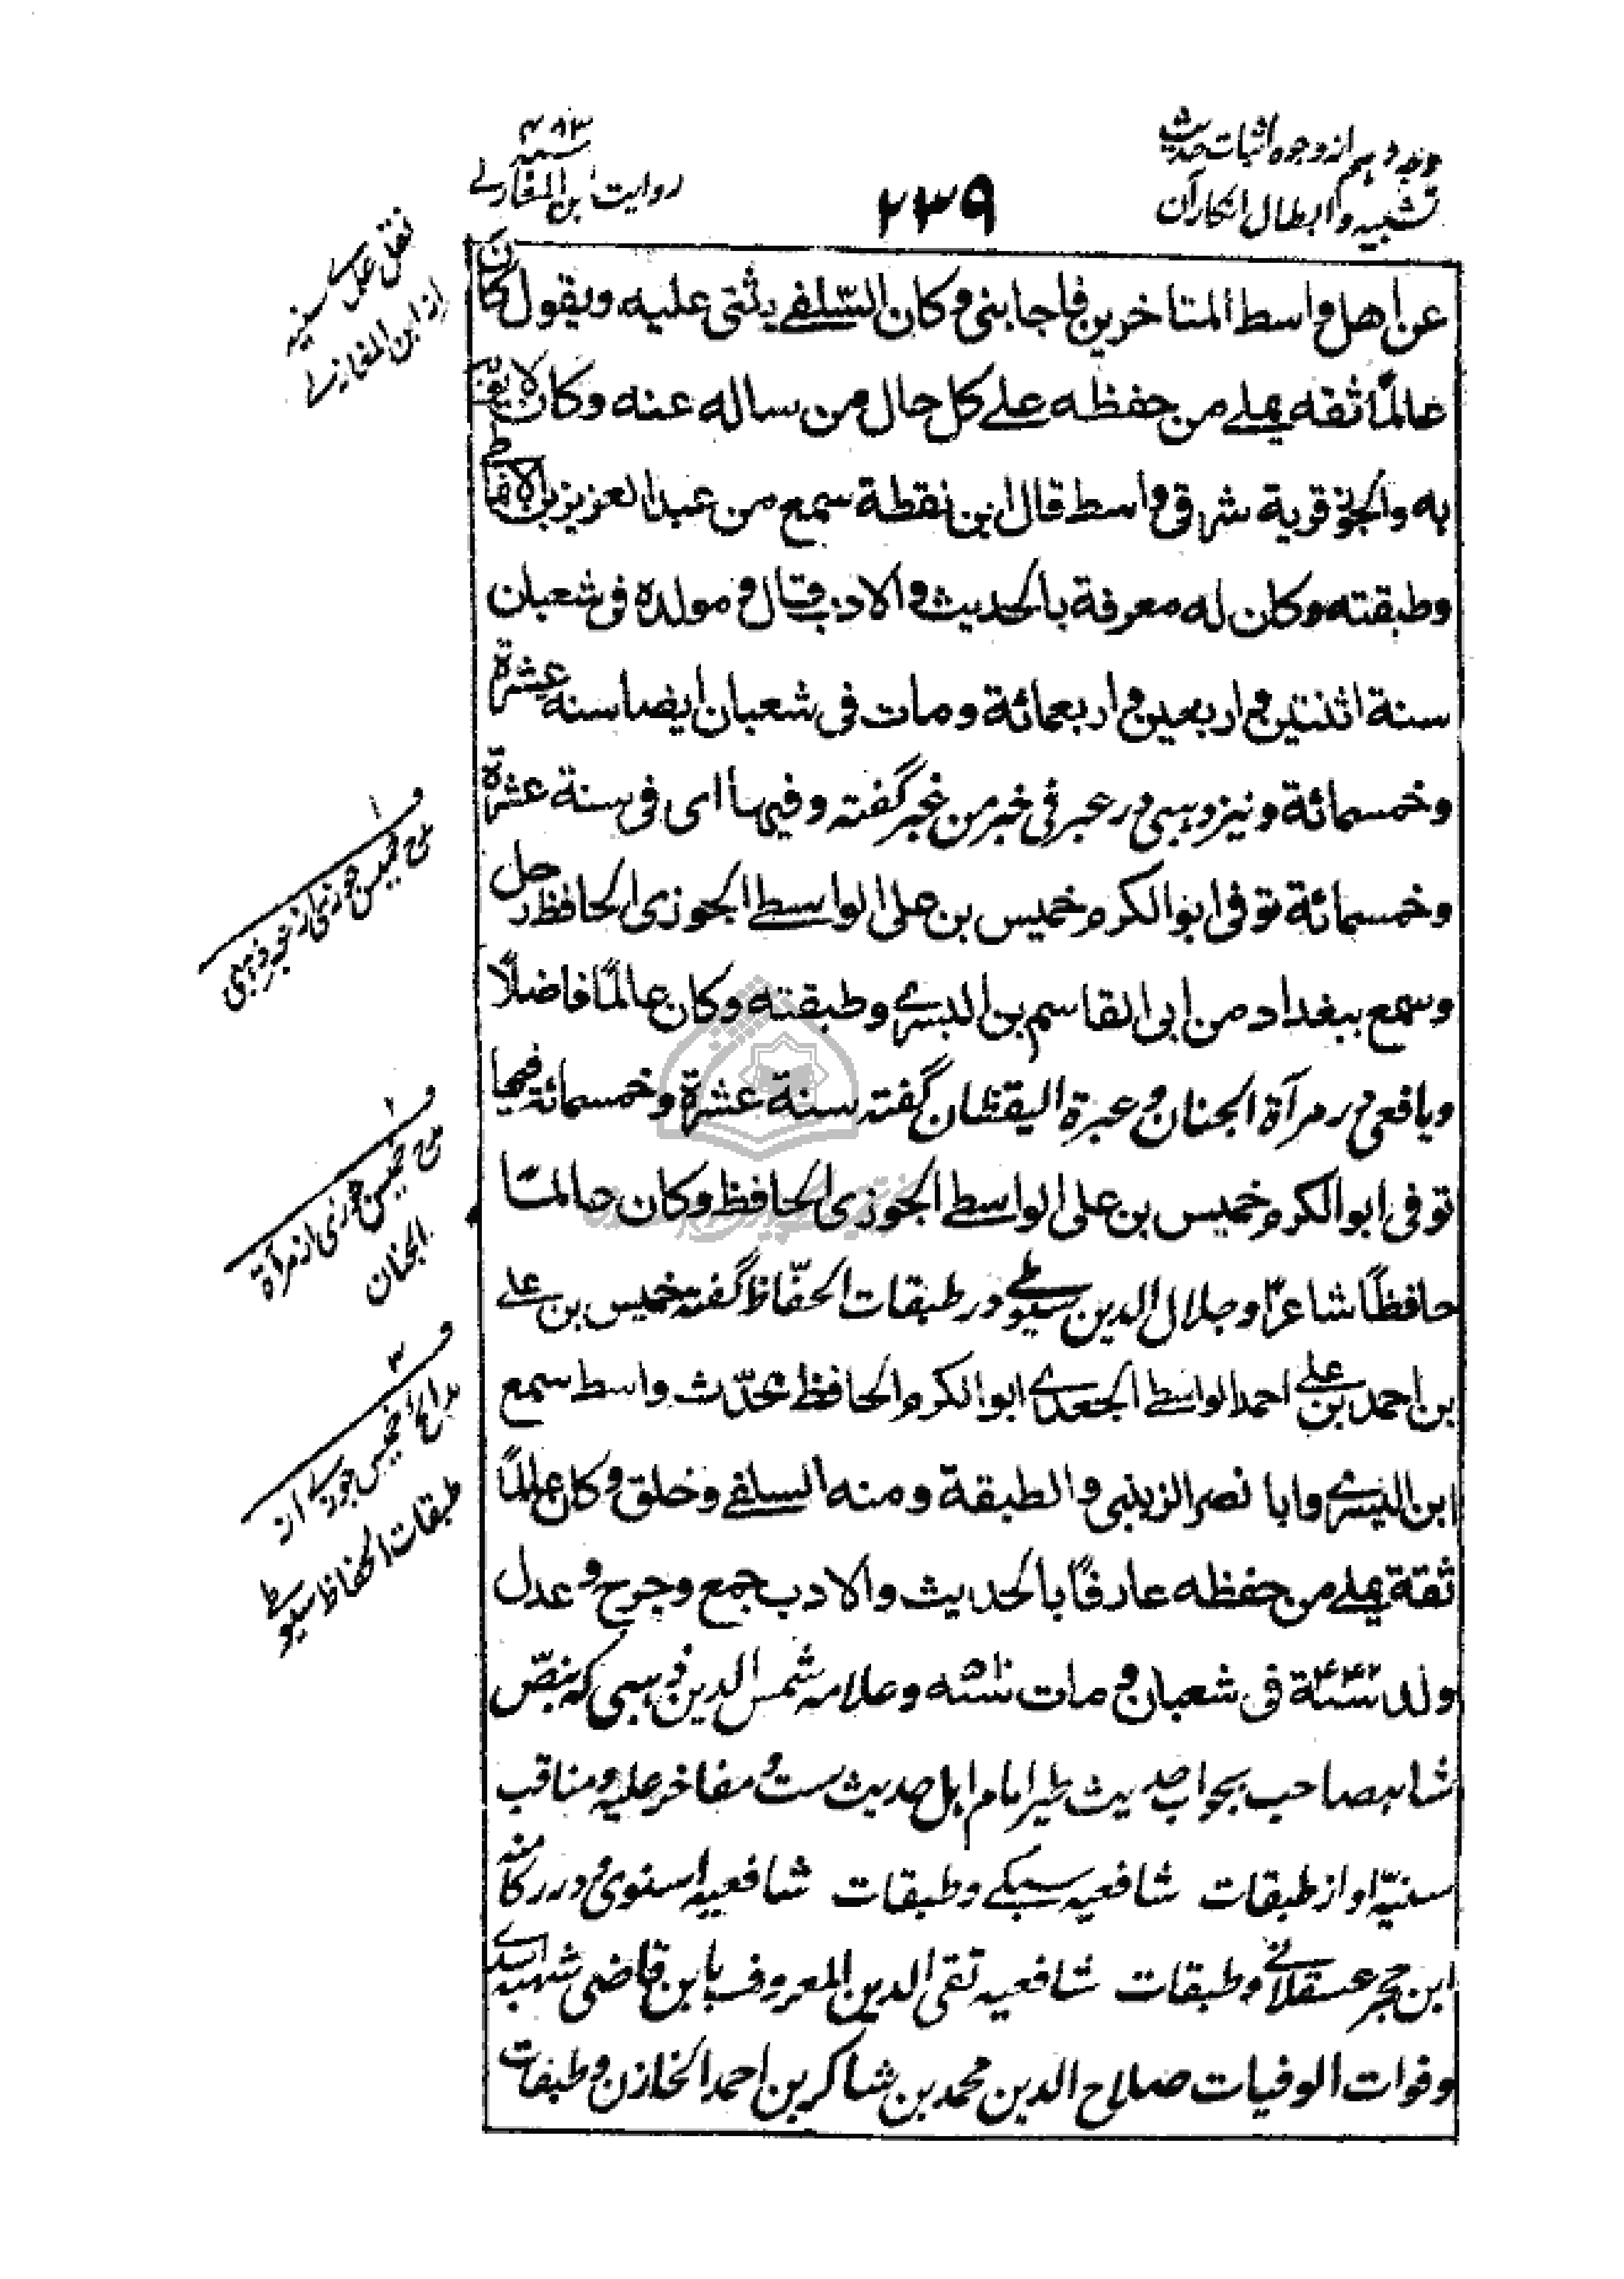 وجه دهم از وجوه اثبات حدیث
تشبیه و ابطال انکار آن
۲۳۹
۴۸۳
روایت ابن المغازلی سنه
نقل علمای سنیه
از ابن المغازلی
عن اهل واسط المتاخرین فاجابنی و کان السّلفے یثنی علیه ویقول کان
عالمًا ثقه یملے من حفظه علے کل حال من ساله عنه وکان لا یعبأ
به والحوز قریة شرقی واسط قال ابن نقطة سمع من عبد العزیز بن الانماطی
وطبقته وکان له معرفة بالحدیث والادب قال و مولده فی شعبان
سنة اثنتین و اربعین و اربعمائة ومات فی شعبان ایضا سنه عشرة
وخمسمائة ونیز ذهبی در عبر فی خبر من غبر گفته وفیها ای فی سنة عشرة
وخمسمائة توفی ابو الکرم خمیس بن علی الواسطے الجوزی الحافظ رحل
وسمع ببغداد من ابی القاسم بن البسرے وطبقته وکان عالمًا فاضلًا
و یافعی در مرآة الجنان و عبرة الیقظان گفته سنة عشرة وخمسمائة فیها
توفی ابو الکرم خمیس بن علی الواسطے الجوزی الحافظ وکان عالمًا
حافظًا شاعرًا وجلال الدین سیوطے در طبقات الحفّاظ گفته خمیس بن علے
بن احمد بن علے احمد الواسطے الجعدے ابو الکرم الحافظ محدّث واسط سمع
ابن البسرے وابا نصر الزینبی والطبقة ومنه السلفے وخلق وکان عالمًا
ثقة یملے من حفظه عارفًا بالحدیث والادب جمع وجرح و عدل
ولد سنة ۴۴۲ فی شعبان و مات سنه ۵۱۰ وعلامه شمس الدین ذهبی که بنصّ
شاهصاحب بجواب حدیث طیر امام اهل حدیث ست و مفاخر علیه و مناقب
سنیّه او از طبقات شافعیه سبکے وطبقات شافعیه اسنوی و درر کامنه
ابن حجر عسقلانے وطبقات شافعیه تقی الدین المعروف بابن قاضی شهبه اسدے
وفوات الوفیات صلاح الدین محمد بن شاکر بن احمد الخازن و طبقات
و ۱
مدح خمیس حوزی از عبر ذهبی
و ۲
مدح خمیس حوزی از مرآة
الجنان
و ۳
مدائح خمیس حوزی از
طبقات الحفاظ سیوطے